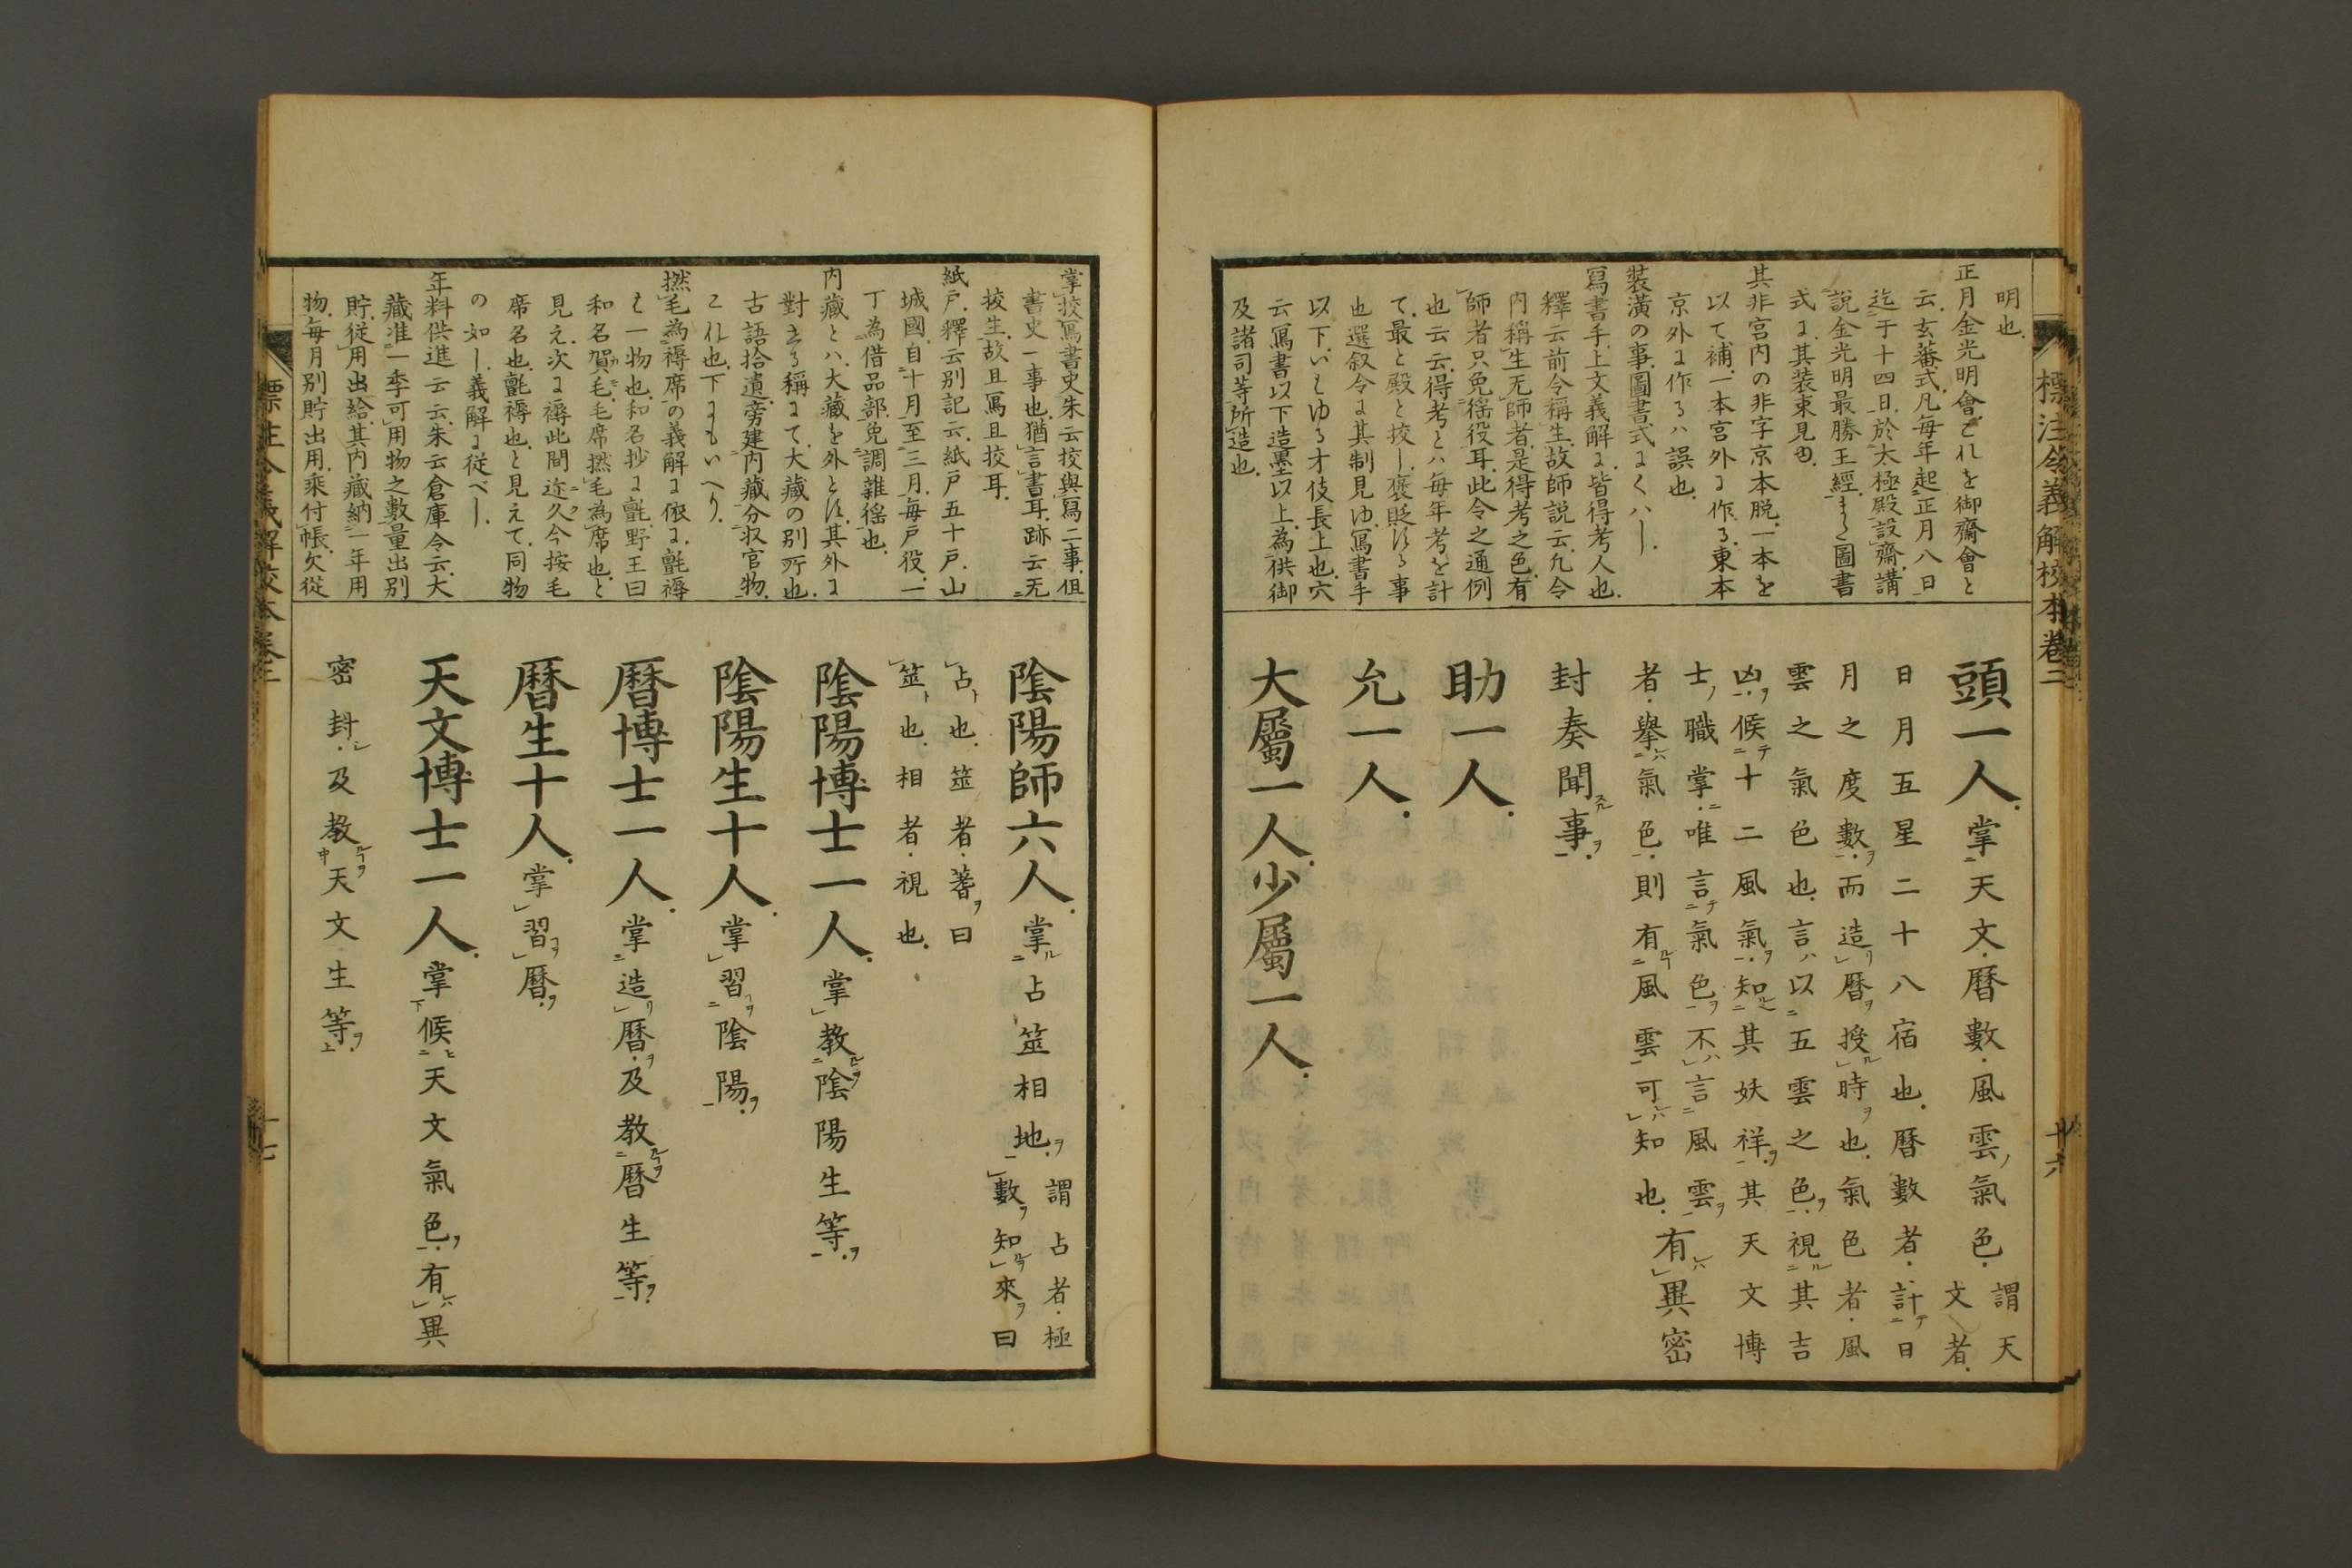 標注令義解校本卷二
十六
明也.
正月金光明會これを御齋會と
云.玄蕃式.凡毎年起正月八日
迄于十四日.於太極殿設齋.講
說金光明最勝王經.また圖書
式に.其裝束見ゆ.
其非宮内の非字京本脱.一本を
以て補.一本宮外に作る.東本
京外に作るハ誤也.
裝潢の事.圖書式にくハし.
寫書手.上文義解に.皆得考人也.
釋云前令稱生.故師説云.凡令
内稱生无師者.是得考之色.有
師者.只免徭役耳.此令之通例
也云云.得考とハ毎年考を計
て.最と殿と挍し.褒貶する事
也選叙令に其制見ゆ.寫書手
以下.いはゆる才伎長上也.穴
云寫書以下造墨以上.為供御
及諸司等所造也.
頭一人.掌天文.曆數.風雲氣色.謂天
文者.
日月五星二十八宿也.曆數者.計日
月之度數.而造曆授時也.氣色者.風
雲之氣色也.言以五雲之色.視其吉
凶.候十二風氣.知其妖祥.其天文博
士職掌.唯言氣色.不言風雲
者.擧氣色.則有風雲可知也.有異密
封奏聞事.
助一人.
允一人.
大屬一人.少屬一人.
掌挍寫書史朱云挍與寫二事.但
書史一事也.猶言書耳.跡云无
挍生.故且寫且挍耳.
紙戸.釋云別記云.紙戸五十戸.山
城國.自十月至三月.毎戸役.一
丁為借品部.免調雜徭也.
内藏とハ.大藏を外とし.其外に
對する稱にて.大藏の別所也.
古語拾遺.旁建内藏分収官物.
これ也.下にもいへり.
撚毛為褥席の義解に依に.氈褥
は一物也.和名抄に氈.野王曰
和名賀毛.毛席撚毛為席也.と
見え.次に褥此間迩久今按毛
席名也.氈褥也.と見えて.同物
の如し.義解に従べし.
年料供進云云.朱云倉庫令云.大
藏准一季可用物之數量出別
貯.従用出給.其内藏納一年用
物.毎月別貯出用.乘付帳.欠從
陰陽師六人.掌占筮相地.謂占者.極
數知來曰
占也.筮者.蓍曰
筮也.相者.視也.
陰陽博士一人.掌教陰陽生等.
陰陽生十人.掌習陰陽.
曆博士一人.掌造曆.及教曆生等.
曆生十人.掌習曆.
天文博士一人.掌候天文氣色.有異
密封.及教天文生等.
標注令義解校本卷二
十七